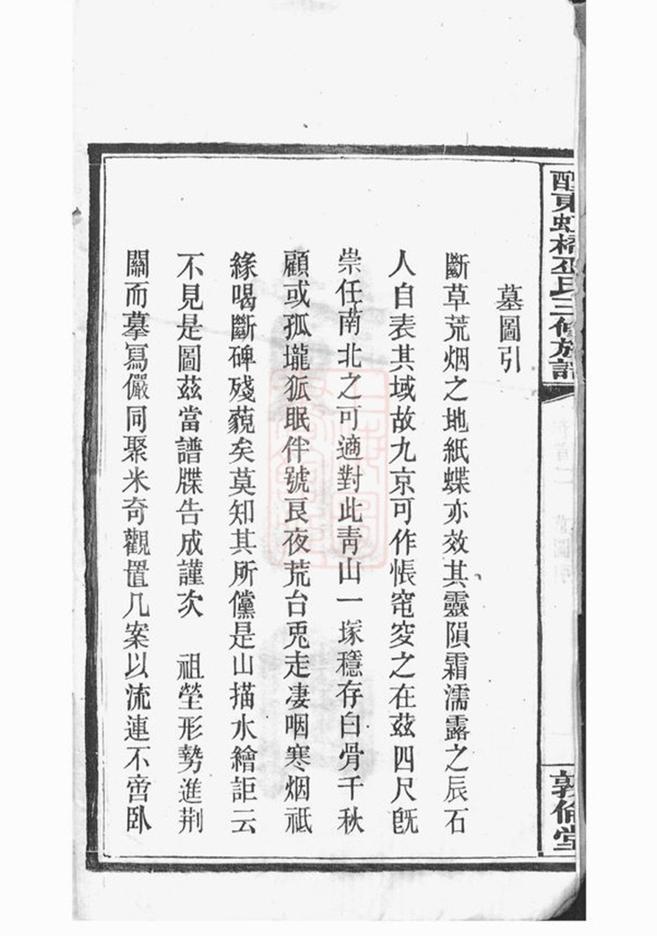 醴東虹橋巫氏三修族譜
敦倫堂
墓圖引
斷草荒烟之地紙蝶亦效其靈隕霜濡露之辰石
人自表其域故九京可作悵窀穸之在茲四尺旣
崇任南北之可適對此靑山一塚穩存白骨千秋
顧或孤壠狐眠伴號良夜荒台兎走凄咽寒烟祗
緣喝斷碑殘藐矣莫知其所儻是山描水繪詎云
不見是圖茲當譜牒告成謹次 祖塋形勢進荆
關而摹寫儼同聚米奇觀置几案以流連不啻臥